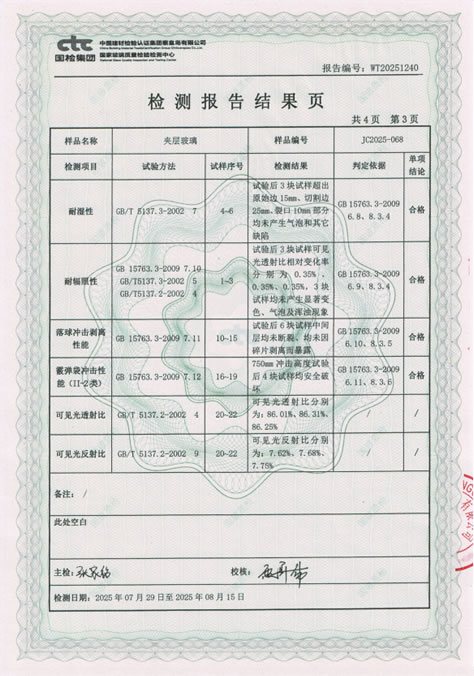 ctc
国检集团
中国建材检验认证集团秦皇岛有限公司
国家玻璃质量检验检测中心
报告编号：WT20251240
检测报告结果页
共 4 页 第 3 页
样品名称 夹层玻璃 样品编号 JC2025-068
检测项目 试验方法 试样序号 检测结果 判定依据 单项结论
耐湿性 GB/T 5137.3-2002 7 4~6
试验后 3 块试样超出
原始边 15mm、切割边
25mm、裂口 10mm 部分
均未产生气泡和其它
缺陷
GB 15763.3-2009
6.8、8.3.4
合格
耐辐照性
GB 15763.3-2009 7.10
GB/T5137.3-2002 5
GB/T5137.2-2002 4
1~3
试验后 3 块试样可见
光透射比相对变化率
分别为 0.35%、
0.35%、0.35%，3 块
试样均未产生显著变
色、气泡及浑浊现象
GB 15763.3-2009
6.9、8.3.4
合格
落球冲击剥离
性能
GB 15763.3-2009 7.11
10~15
试验后 6 块试样中间
层均未断裂、均未因
碎片剥离而暴露
GB 15763.3-2009
6.10、8.3.5
合格
霰弹袋冲击性
能（II-2 类）
GB 15763.3-2009 7.12
16~19
750mm 冲击高度试验
后 4 块试样均安全破
坏
GB 15763.3-2009
6.11、8.3.6
合格
可见光透射比 GB/T 5137.2-2002 4 20~22
可见光透射比分别
为：86.01%、86.31%、
86.25%
/ /
可见光反射比 GB/T 5137.2-2002 9 20~22
可见光反射比分别
为：7.62%、7.68%、
7.75%
/ /
备注： /
此处空白
主检： 校核：
检测日期：2025 年 07 月 29 日至 2025 年 08 月 15 日